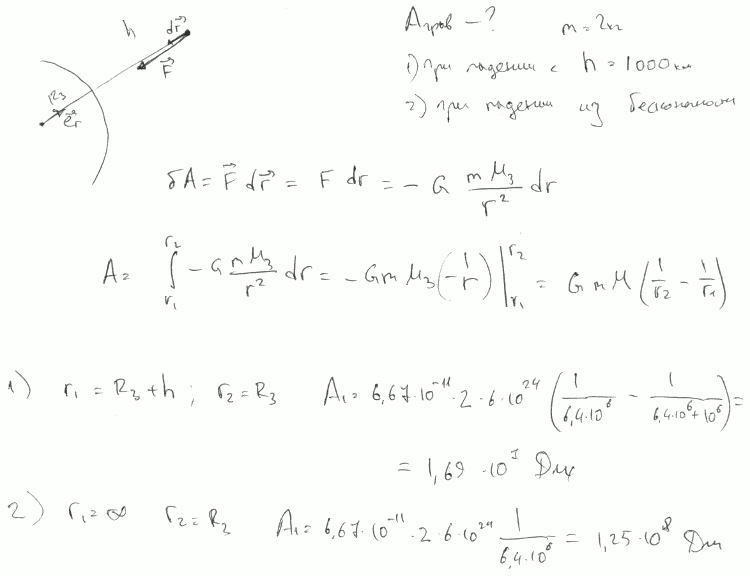 h dr⃗ F⃗ R₃ e⃗r
Aграв - ? m = 2 кг
1) при падении с h = 1000 км
2) при падении из бесконечности
δA = F⃗ dr⃗ = F dr = - G mM₃/r² dr
A = ∫_{r₁}^{r₂} - G mM₃/r² dr = - GmM₃ (-1/r) |_{r₁}^{r₂} = GmM (1/r₂ - 1/r₁)
1) r₁ = R₃ + h ; r₂ = R₃ A₁ = 6,67·10⁻¹¹ · 2 · 6·10²⁴ (1/6,4·10⁶ - 1/6,4·10⁶+10⁶) =
= 1,69 · 10⁷ Дж
2) r₁ = ∞ r₂ = R₃ A₁ = 6,67·10⁻¹¹ · 2 · 6·10²⁴ 1/6,4·10⁶ = 1,25 · 10⁸ Дж